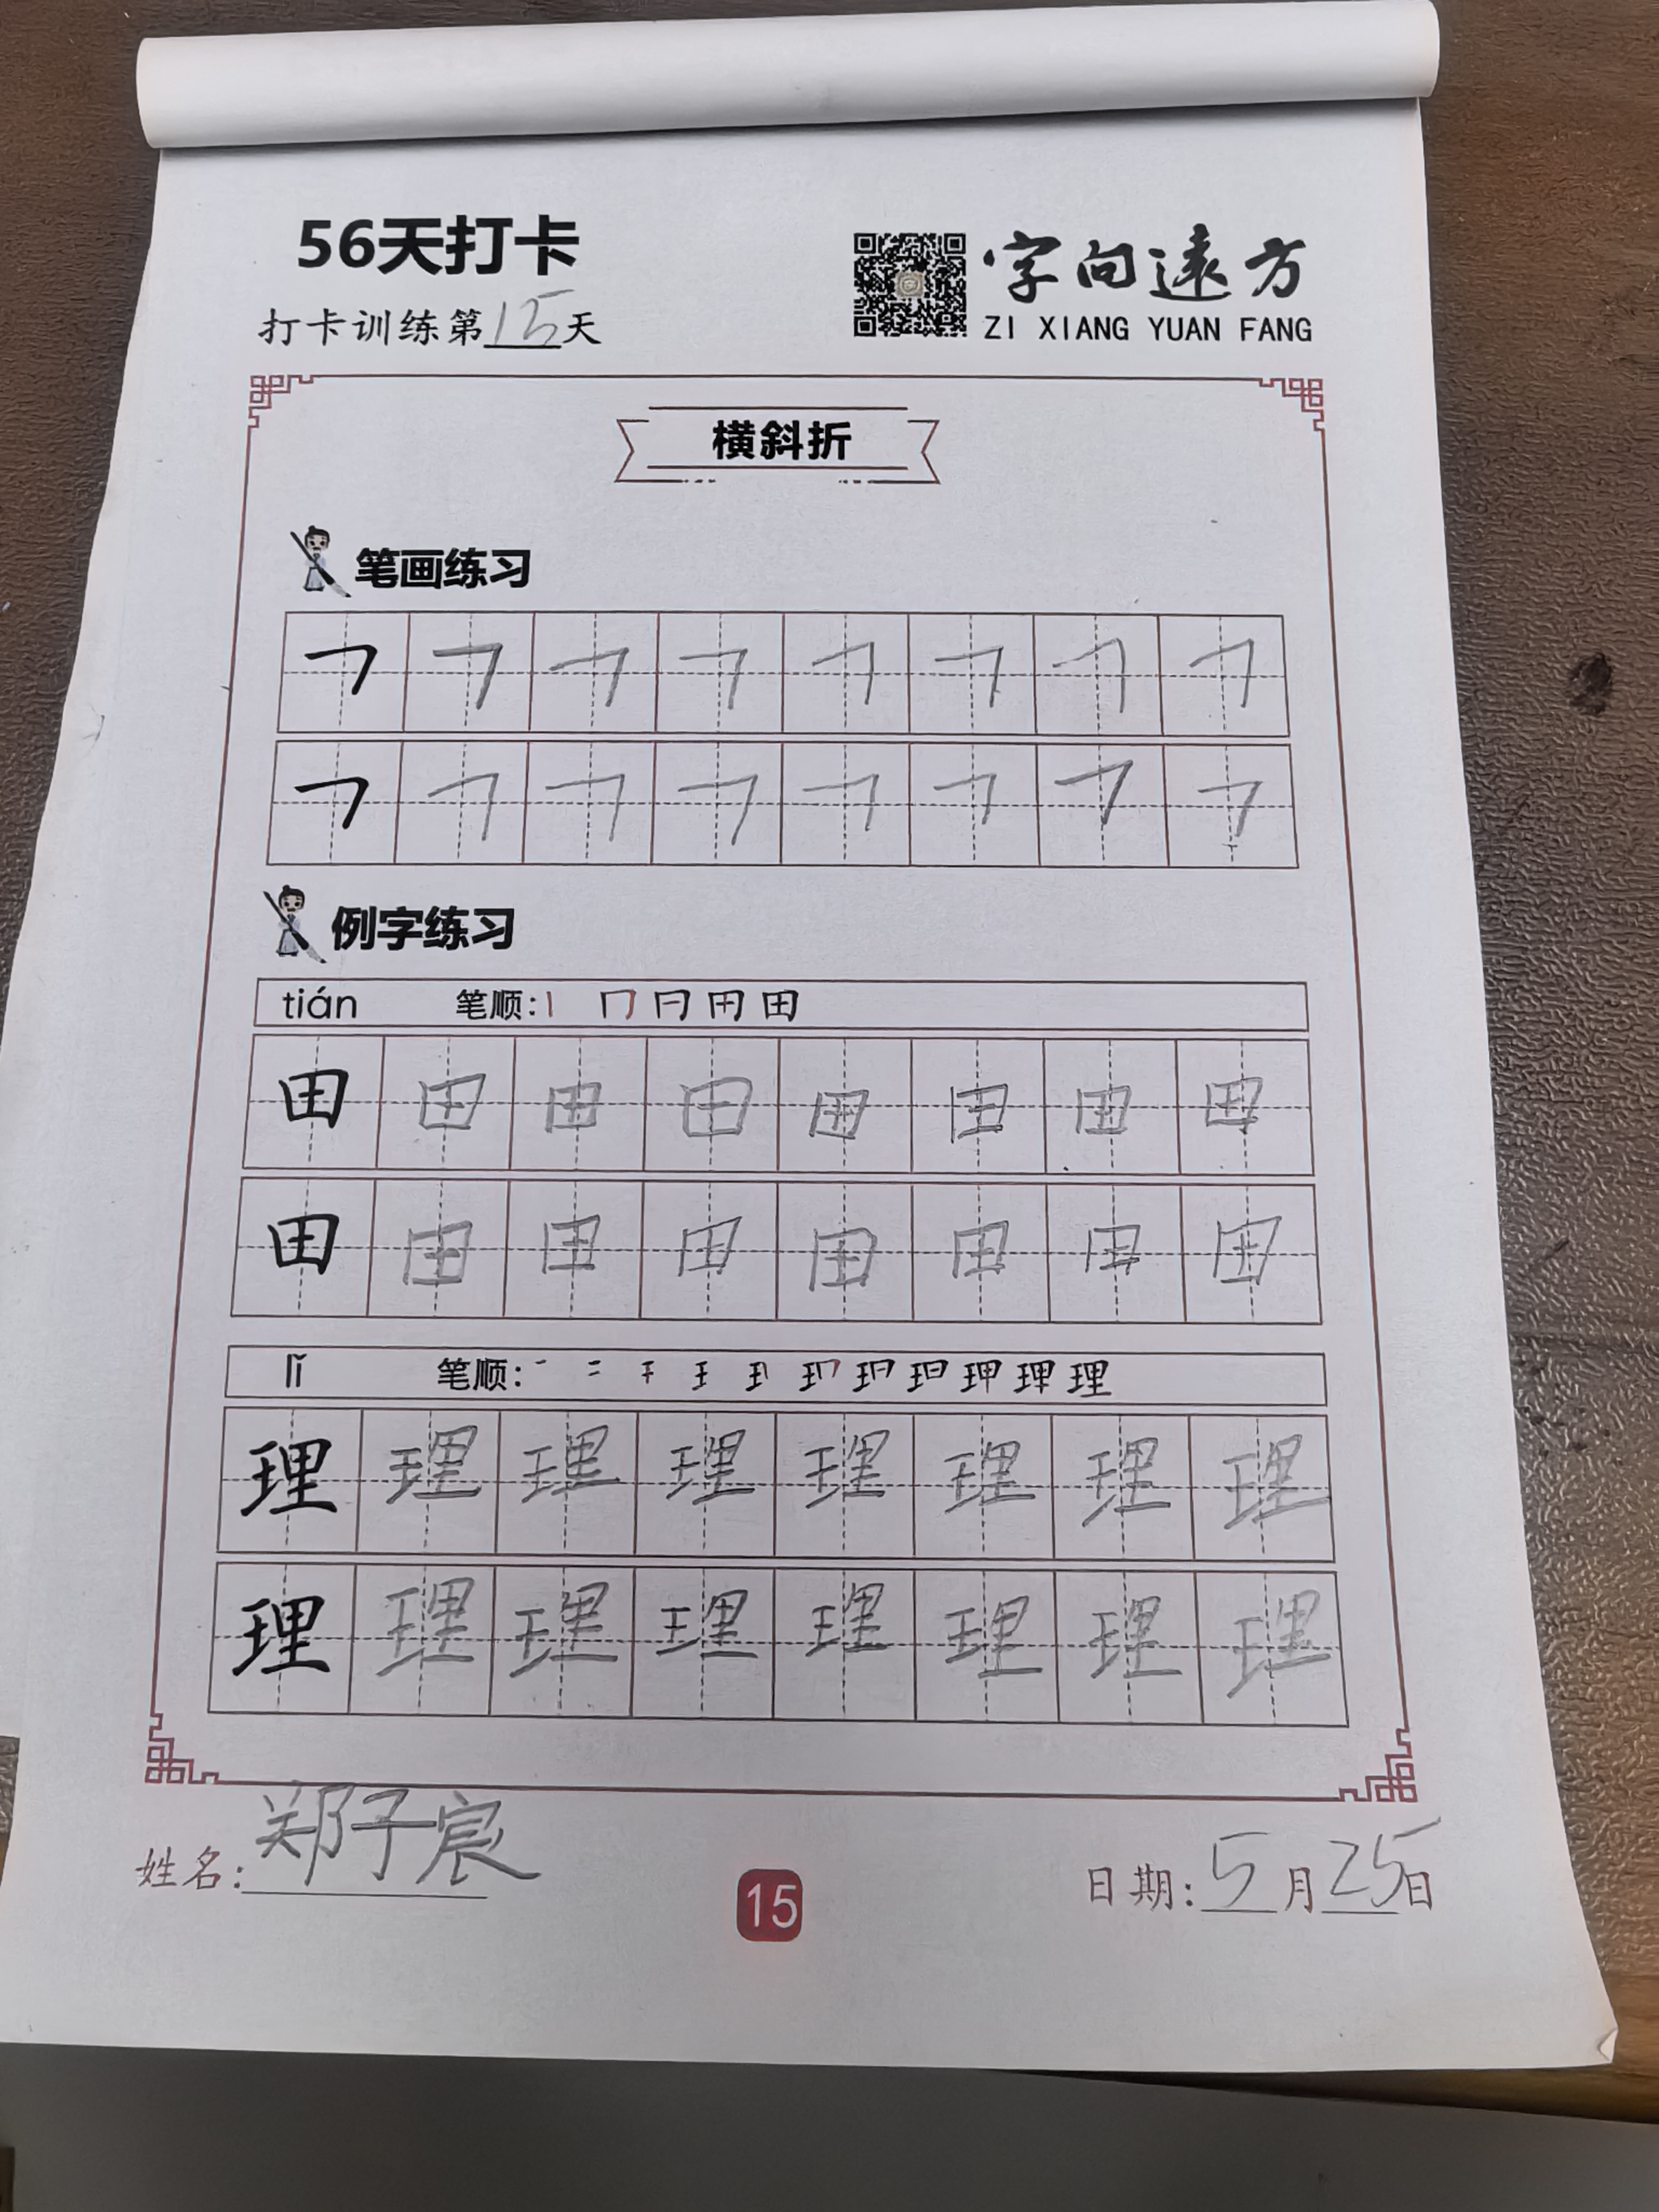 56天打卡
打卡训练第15天
字向遠方
ZI XIANG YUAN FANG
横斜折
笔画练习
㇕ ㇕ ㇕ ㇕ ㇕ ㇕ ㇕ ㇕
㇕ ㇕ ㇕ ㇕ ㇕ ㇕ ㇕ ㇕
例字练习
tián 笔顺：丨 冂 冃 用 田
田 田 田 田 田 田 田 田
田 田 田 田 田 田 田 田
lǐ 笔顺：
理 理 理 理 理 理 理 理
理 理 理 理 理 理 理 理
姓名：郑子宸
15
日期：5月25日